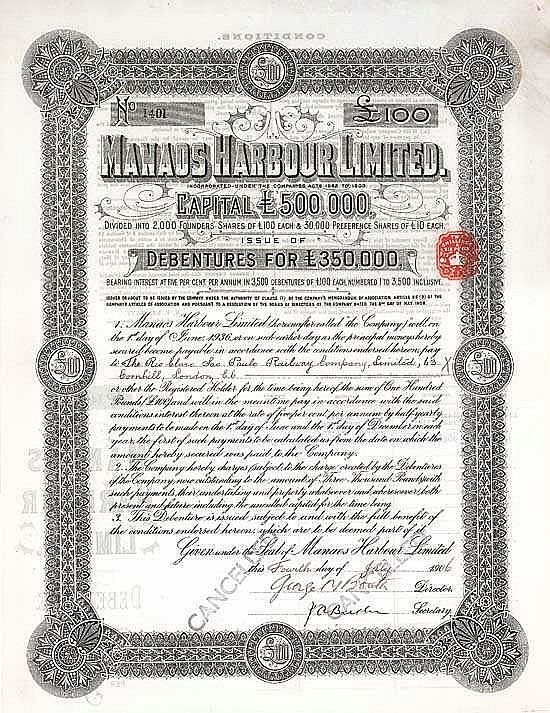 CONDITIONS.
£100
£100
No 1401
£100
MANAOS HARBOUR LIMITED.
INCORPORATED UNDER THE COMPANIES ACTS 1862 TO 1900
CAPITAL £500,000,
DIVIDED INTO 2,000 FOUNDERS' SHARES OF £100 EACH & 30,000 PREFERENCE SHARES OF £10 EACH.
ISSUE OF
DEBENTURES FOR £350,000.
BEARING INTEREST AT FIVE PER CENT PER ANNUM IN 3,500 DEBENTURES OF £100 EACH, NUMBERED 1 TO 3,500 INCLUSIVE.
ISSUED OR ABOUT TO BE ISSUED BY THE COMPANY UNDER THE AUTHORITY OF CLAUSE OF THE COMPANY'S MEMORANDUM OF ASSOCIATION, ARTICLE OF THE
COMPANY'S ARTICLES OF ASSOCIATION AND PURSUANT TO A RESOLUTION OF THE BOARD OF DIRECTORS OF THE COMPANY DATED THE DAY OF MAY, 1906.
1. Manaos Harbour Limited (hereinafter called "the Company") will, on
the 1st day of June, 1936, or on such earlier day as the principal money hereby
secured become payable in accordance with the conditions endorsed hereon, pay
to The Rio Claro Sao Paulo Railway Company, Limited, 63 X
Cornhill, London, E.C.
or other the Registered Holder for the time being hereof the sum of One Hundred
Pounds (£100) and will in the meantime pay in accordance with the said
conditions interest thereon at the rate of five per cent per annum by half-yearly
payments to be made on the 1st day of June and the 1st day of December in each
year, the first of such payments to be calculated as from the date on which the
amount hereby secured was paid to the Company.
2. The Company hereby charges (subject to the charge created by the Debentures
of the Company now outstanding to the amount of Three Thousand Pounds) with
such payments, their undertaking and property whatsoever and wheresoever, both
present and future including the uncalled capital for the time being
3. This Debenture is issued subject to and with the full benefit of
the conditions endorsed hereon which are to be deemed part of it.
Given under the Seal of Manaos Harbour Limited
this Fourth day of July 1906
Director.
Secretary.
CANCELLED
£100
£100
£100
£100